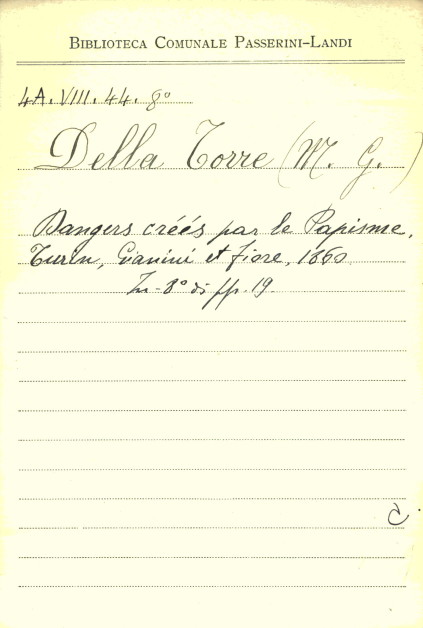 BIBLIOTECA COMUNALE PASSERINI-LANDI
4A. VIII. 44. 8º
Della Torre (M. G.)
Dangers créés par le Papisme,
Turin, Gianini et Fiore, 1860
In-8º di pp. 19.
C